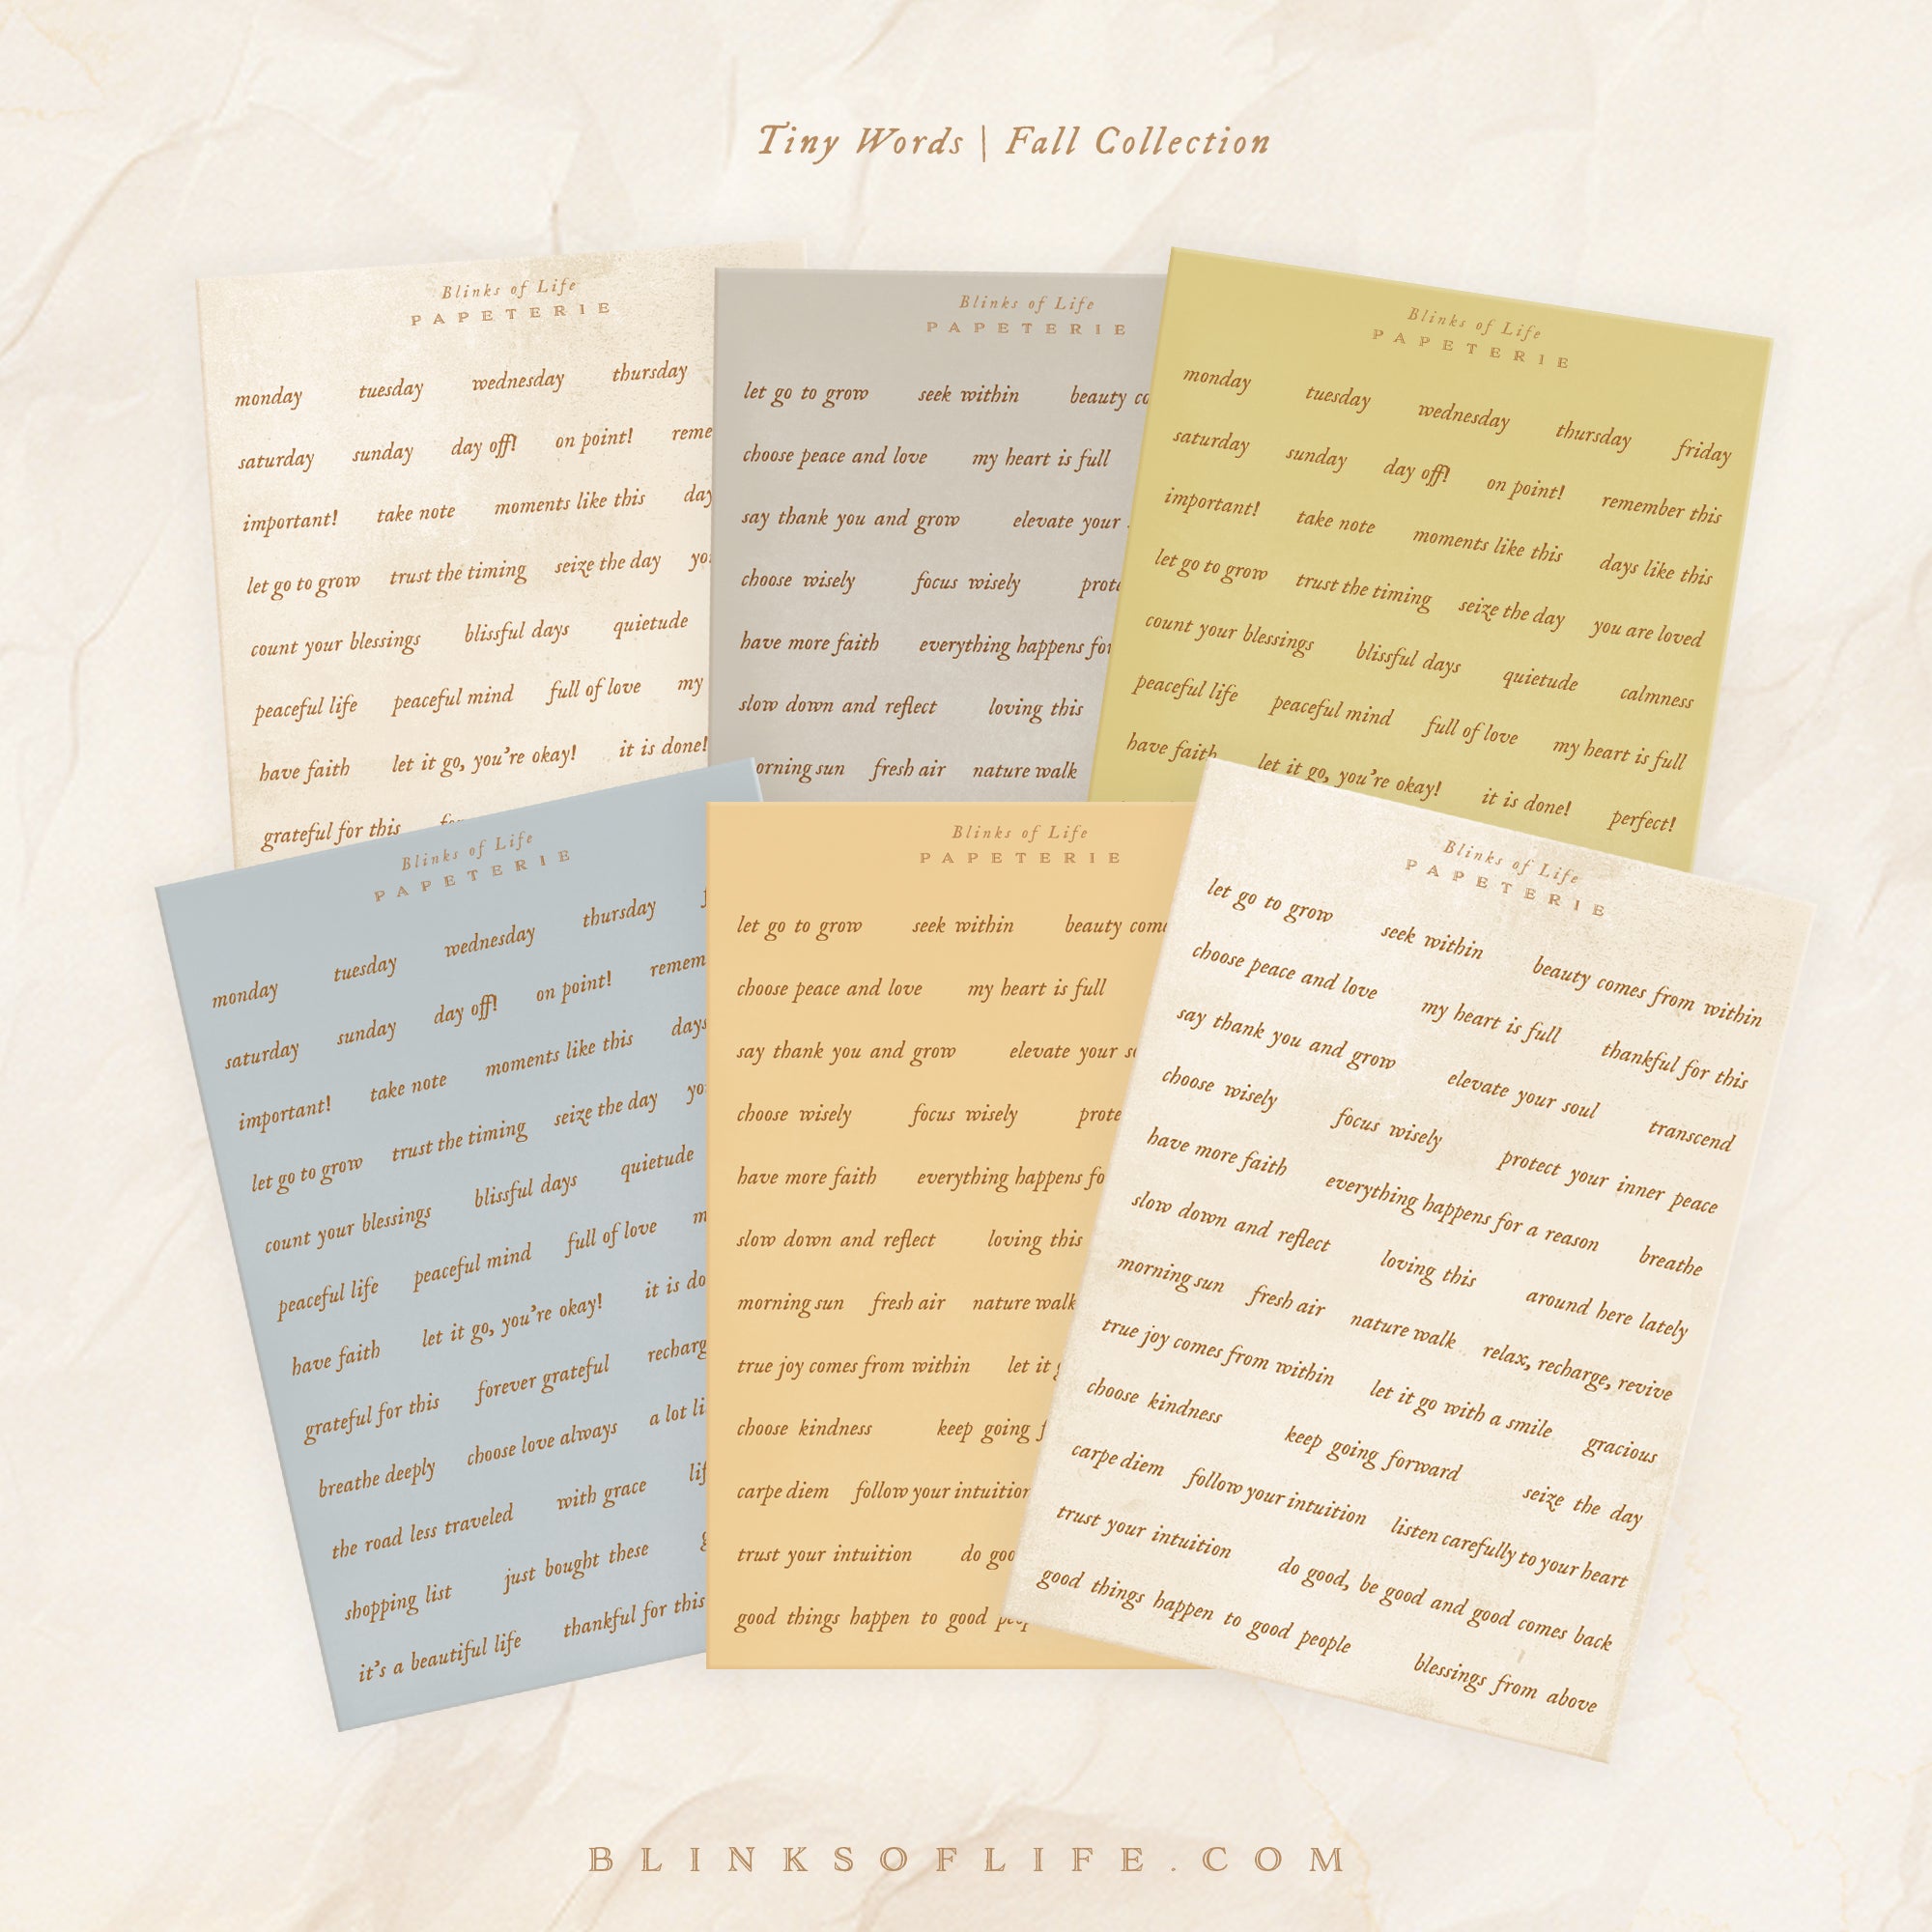 Tiny Words | Fall Collection
Blinks of Life
PAPETERIE
monday tuesday wednesday thursday
saturday sunday day off! on point!
important! take note moments like this
let go to grow trust the timing seize the day
count your blessings blissful days quietude
peaceful life peaceful mind full of love my
have faith let it go, you're okay! it is done!
grateful for this
Blinks of Life
PAPETERIE
let go to grow seek within beauty
choose peace and love my heart is full
say thank you and grow elevate your
choose wisely focus wisely
have more faith everything happens
slow down and reflect loving this
fresh air nature walk
Blinks of Life
PAPETERIE
monday tuesday wednesday thursday friday
saturday sunday day off! on point! remember this
important! take note moments like this days like this
let go to grow trust the timing seize the day you are loved
count your blessings blissful days quietude calmness
peaceful life peaceful mind full of love my heart is full
have faith let it go, you're okay! it is done! perfect!
Blinks of Life
PAPETERIE
monday tuesday wednesday thursday
saturday sunday day off! on point!
important! take note moments like this days
let go to grow trust the timing seize the day
count your blessings blissful days quietude
peaceful life peaceful mind full of love
have faith let it go, you're okay! it is
grateful for this forever grateful
breathe deeply choose love always a lot
the road less traveled with grace
shopping list just bought these
it's a beautiful life thankful for this
Blinks of Life
PAPETERIE
let go to grow seek within beauty
choose peace and love my heart is full
say thank you and grow elevate your
choose wisely focus wisely
have more faith everything happens
slow down and reflect loving this
morning sun fresh air nature walk
true joy comes from within let it
choose kindness keep going
carpe diem follow your intuition
trust your intuition do
good things happen to good
Blinks of Life
PAPETERIE
let go to grow seek within beauty comes from within
choose peace and love my heart is full thankful for this
say thank you and grow elevate your soul transcend
choose wisely focus wisely protect your inner peace
have more faith everything happens for a reason breathe
slow down and reflect loving this around here lately
morning sun fresh air nature walk relax, recharge, revive
true joy comes from within let it go with a smile gracious
choose kindness keep going forward seize the day
carpe diem follow your intuition listen carefully to your heart
trust your intuition do good, be good and good comes back
good things happen to good people blessings from above
BLINKSOFLIFE.COM